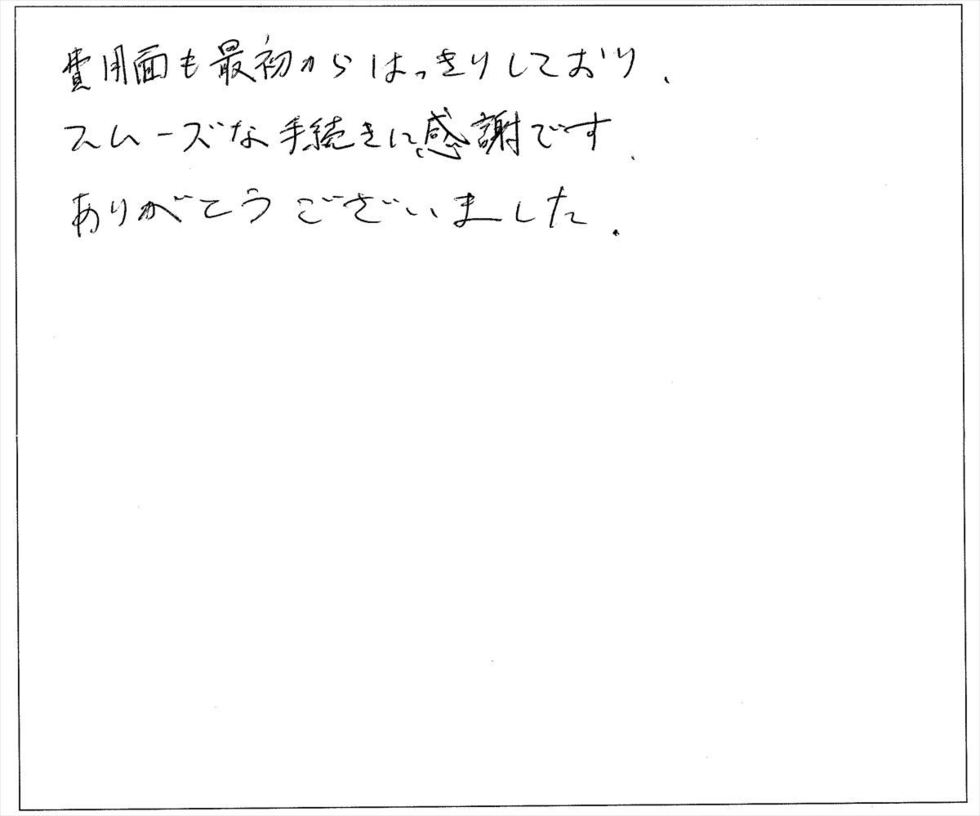 費用面も最初からはっきりしており、
スムーズな手続きに感謝です.
ありがとうございました.